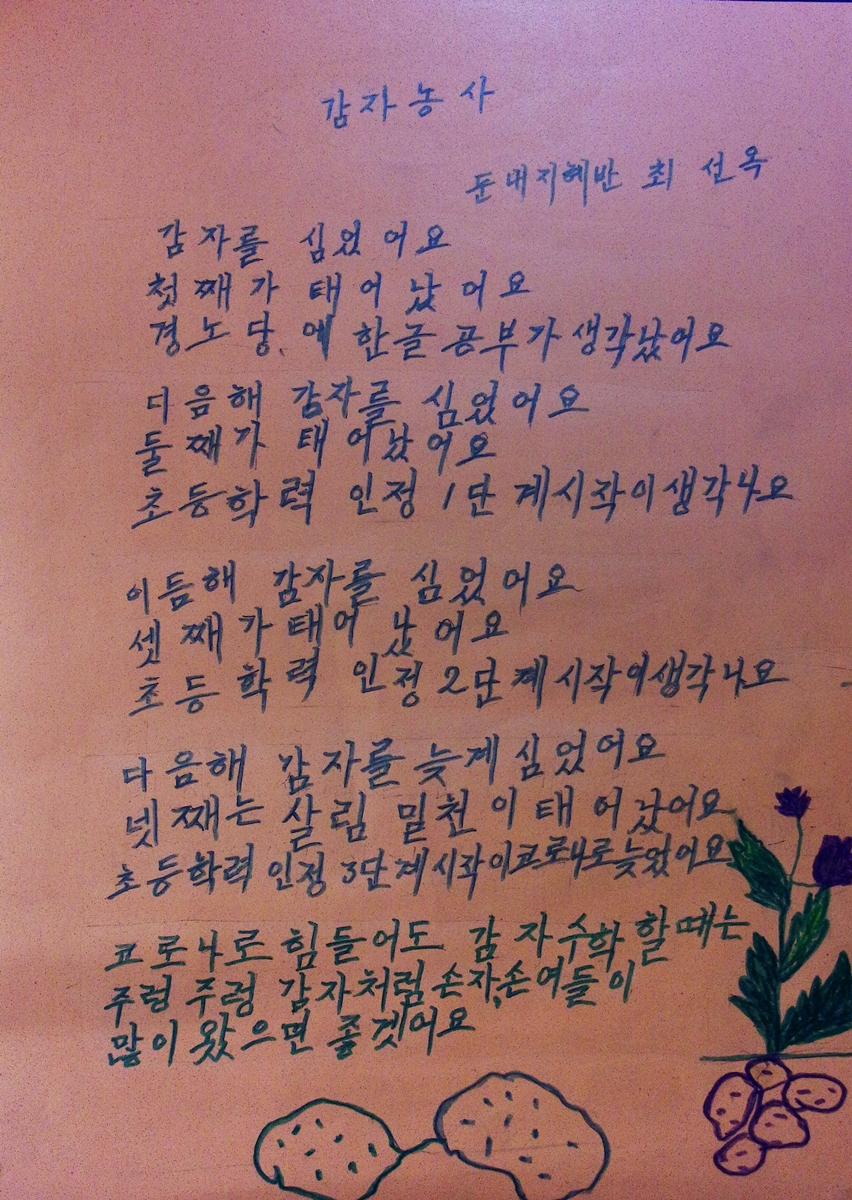 감자농사
둔내지혜반 최선옥
감자를 심었어요
첫째가 태어났어요
경노당에 한글공부가 생각났어요
다음해 감자를 심었어요
둘째가 태어났어요
초등학력 인정 1단계시작이생각나요
이듬해 감자를 심었어요
셋째가태어났어요
초등학력 인정 2단계시작이생각나요
다음해 감자를 늦게 심었어요
넷째는 살림 밑천이 태어났어요
초등학력 인정 3단계시작이코로나로늦었어요
코로나로 힘들어도 감자수확 할때는
주렁주렁 감자처럼 손자,손여들이
많이 왔으면 좋겟어요